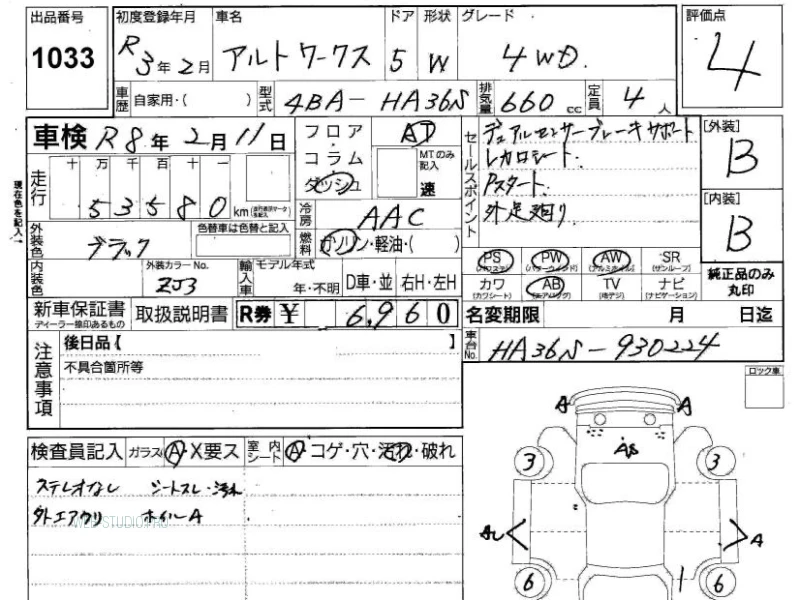 出品番号 初度登録年月 車名 ドア 形状 グレード 評価点
1033 R3年2月 アルトワークス 5 W 4WD. 4
車歴 自家用・( ) 型式 4BA-HA36S 排気量 660 cc 定員 4 人
車検 R8年2月11日 フロア・コラム ダッシュ AT MTのみ記入 速
走行 十 万 千 百 十 一
53580 km
セールスポイント デュアルセンサーブレーキサポート
レカロシート.
Pスタート.
外足廻り.
[外装] B
[内装] B
現在色を記入
外装色 ブラック 色替車は色替と記入
冷房 AAC
燃料 ガソリン・軽油・( )
内装色 外装カラーNo. ZJ3 輸入車 モデル年式 年・不明 D車・並 右H・左H
PS (パワステ) PW (パワーウインド) AW (アルミホイル) SR (サンルーフ)
カワ (カワシート) AB (エアバッグ) TV (地デジ) ナビ (ナビゲーション)
純正品のみ丸印
新車保証書 ディーラー捺印あるもの 取扱説明書 R券 ¥ 6,960 名変期限 月 日迄
注意事項 後日品【 】
不具合箇所等
車台No. HA36S-930224
ロック車
検査員記入 ガラス A・X要ス 室内シート A・コゲ・穴・汚れ・破れ
ステレオなし シートスレ・汚れ
外エアクリ ホイルA
A A
A8
3 3
A
6 6